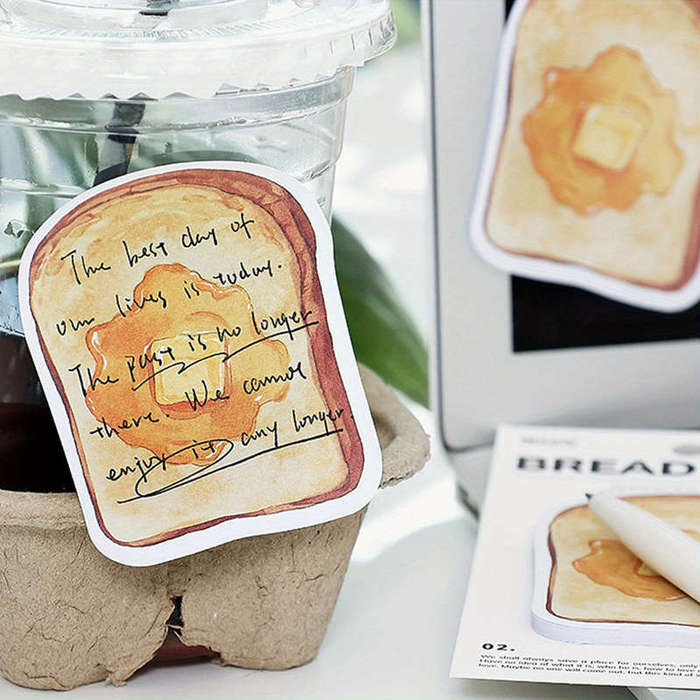 The best day of
our lives is today.
The past is no longer
there. We cannot
enjoy it any longer.
BREAD
02.
We shall always save a place for ourselves, only
Have no idea of what it is, who he is, how to love
love. Maybe no one will come out, but this kind